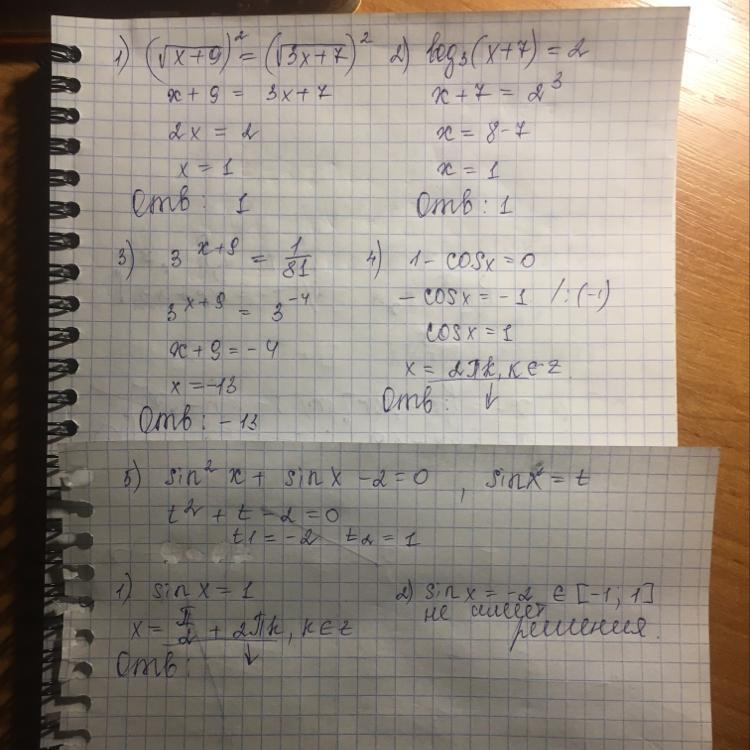 1) (√x+9)² = (√3x+7)²
x+9 = 3x+7
2x = 2
x = 1
Отв: 1
2) log₃(x+7) = 2
x+7 = 2³
x = 8-7
x = 1
Отв: 1
3) 3^(x+9) = 1/81
3^(x+9) = 3^(-4)
x+9 = -4
x = -13
Отв: -13
4) 1 - cosx = 0
- cosx = -1 /:(-1)
cosx = 1
x = 2πk, k∈z
Отв: ↓
5) sin²x + sinx - 2 = 0, sinx = t
t² + t - 2 = 0
t1 = -2 t2 = 1
1) sinx = 1
x = π/2 + 2πk, k∈z
Отв: ↓
2) sinx = -2 ∈ [-1; 1]
не имеет
решения.